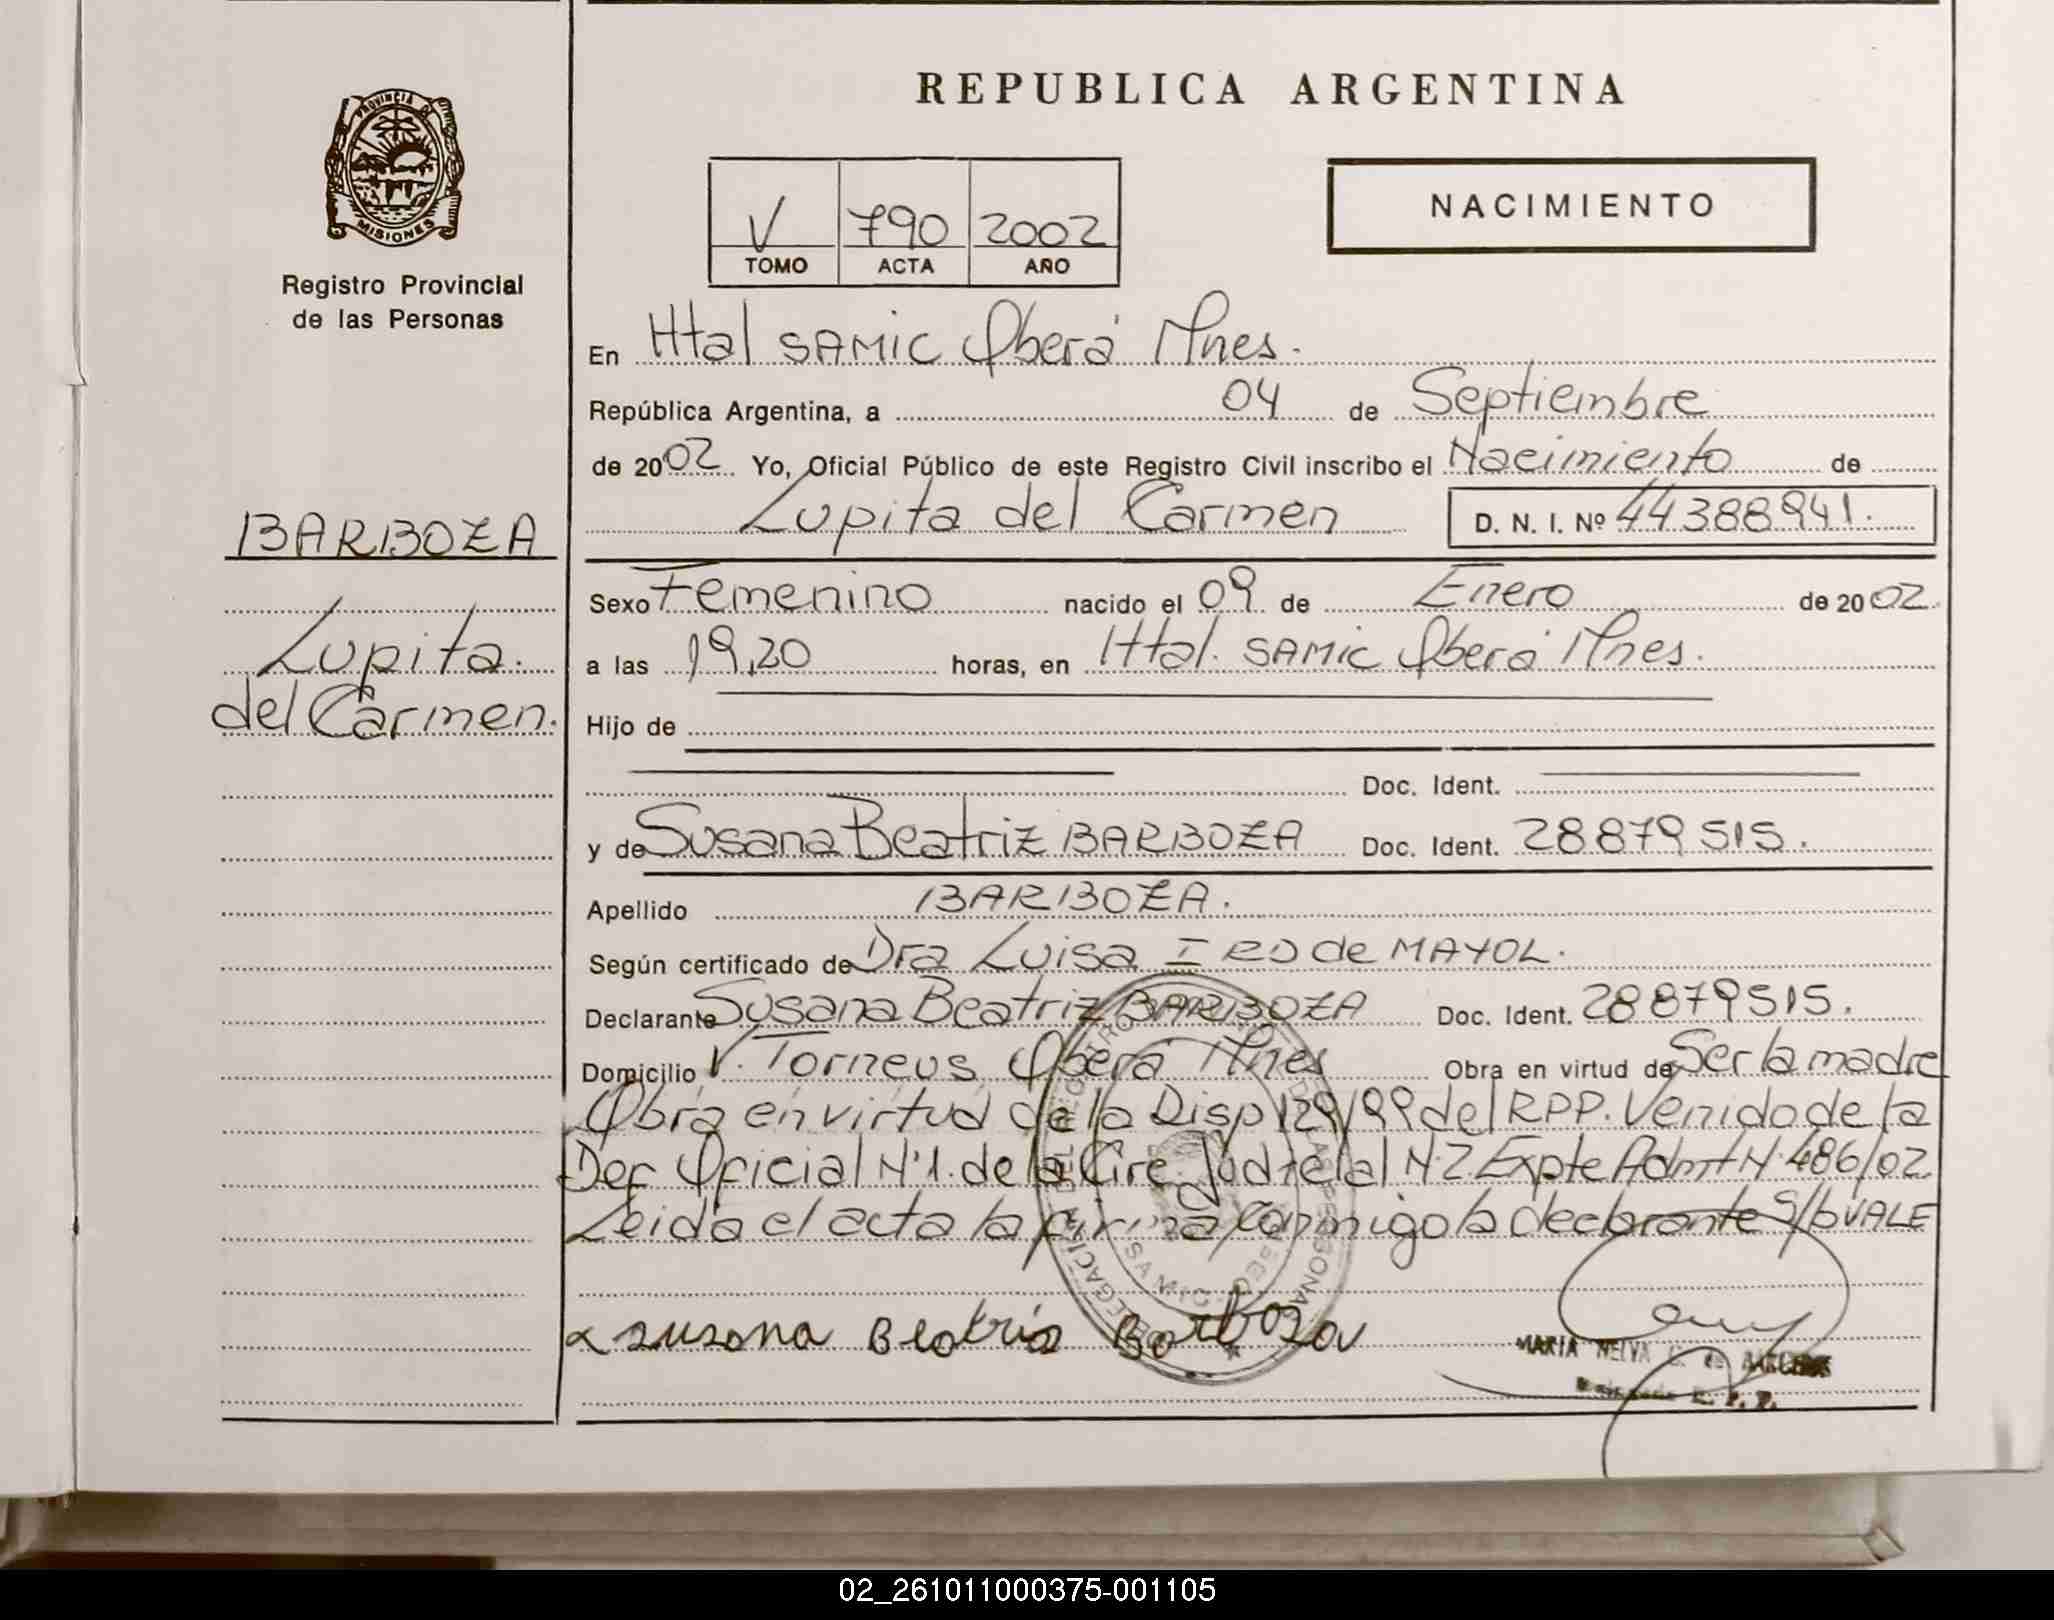 REPUBLICA ARGENTINA
PROVINCIA DE
MISIONES
Registro Provincial
de las Personas
V 790 2002
TOMO ACTA AÑO
NACIMIENTO
En Htal SAMIC Oberá Mnes.
República Argentina, a 04 de Septiembre
de 2002 Yo, Oficial Público de este Registro Civil inscribo el Nacimiento de
Lupita del Carmen D. N. I. Nº 44388941.
BARBOZA
Lupita
del Carmen.
Sexo Femenino nacido el 09 de Enero de 2002
a las 19,20 horas, en Htal. SAMIC Oberá Mnes.
Hijo de
Doc. Ident.
y de Susana Beatriz BARBOZA Doc. Ident. 28879515.
Apellido BARBOZA.
Según certificado de Dra Luisa I de MAYOL.
Declarante Susana Beatriz BARBOZA Doc. Ident. 28879515.
Domicilio V. Torneus Oberá Mnes Obra en virtud de Ser la madre
Obra en virtud de la Disp 129/99 del RPP. Venido de la
Def Oficial Nº1. de la Circ Judicial Nº2 Expte Admt Nº 486/02
Leida el acta la firma conmigo la declarante S/b VALE
x susana Beatris Barboza
MARIA NELVA C. de
02_261011000375-001105